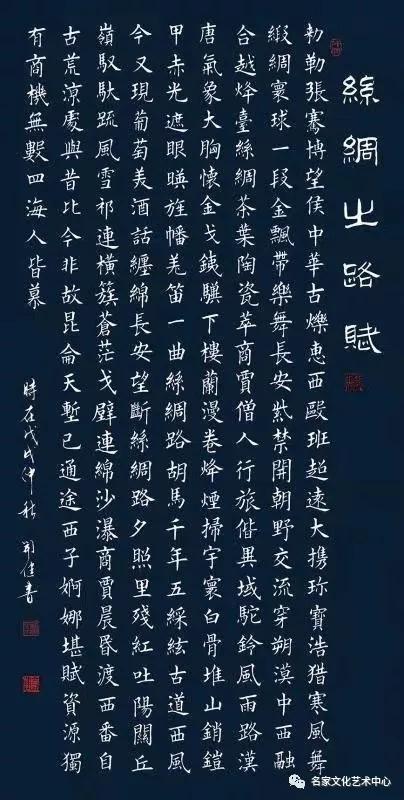 絲綢之路賦
勅勒張騫博望侯中華古爍惠西歐班超遠大携珎寶浩猎寒風舞
緞綢寰球一段金飄帶樂舞長安紫禁開朝野交流穿朔漠中西融
合越烽臺絲綢茶葉陶瓷萃商賈僧人行旅偕異域駝鈴風雨路漢
唐氣象大胸懷金戈銕驥下樓蘭漫卷烽煙掃宇寰白骨堆山銷鎧
甲赤光遮眼暎旌幡羌笛一曲絲綢路胡馬千年五綵絃古道西風
今又現葡萄美酒話纏綿長安望斷絲綢路夕照里殘紅吐陽關丘
嶺馭馱疏風雪祁連橫簇蒼茫戈壁連綿沙瀑商賈晨昏渡西番自
古荒涼處與昔比今非故昆侖天塹已通途西子婀娜堪賦資源獨
有商機無數四海人皆慕
時在戊戌仲秋
佳書
名家文化艺术中心